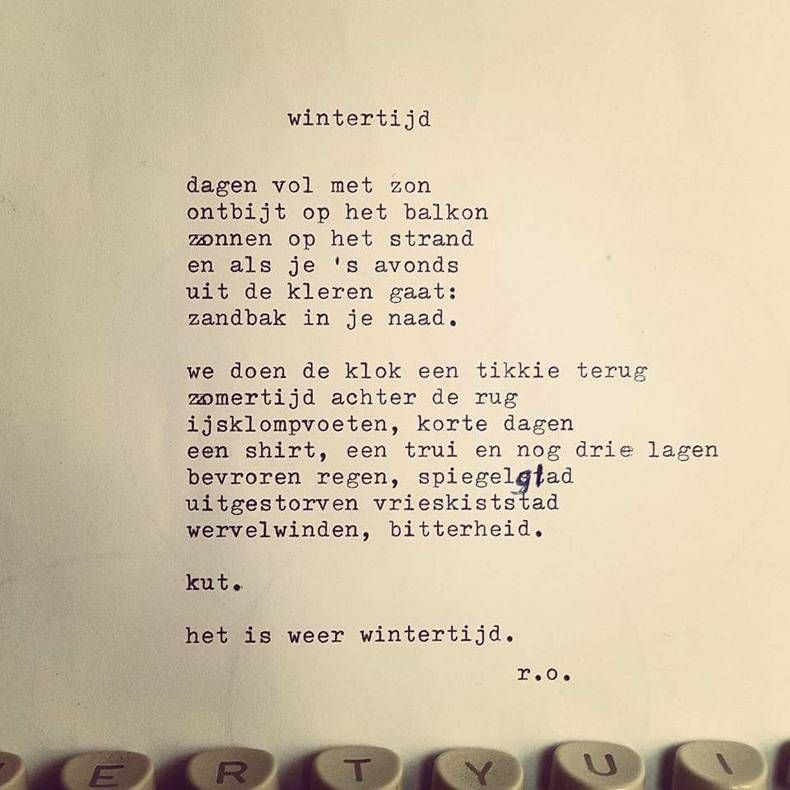 wintertijd
dagen vol met zon
ontbijt op het balkon
zonnen op het strand
en als je 's avonds
uit de kleren gaat:
zandbak in je naad.
we doen de klok een tikkie terug
zomertijd achter de rug
ijsklompvoeten, korte dagen
een shirt, een trui en nog drie lagen
bevroren regen, spiegelglad
uitgestorven vrieskiststad
wervelwinden, bitterheid.
kut.
het is weer wintertijd.
r.o.
E R T Y U I